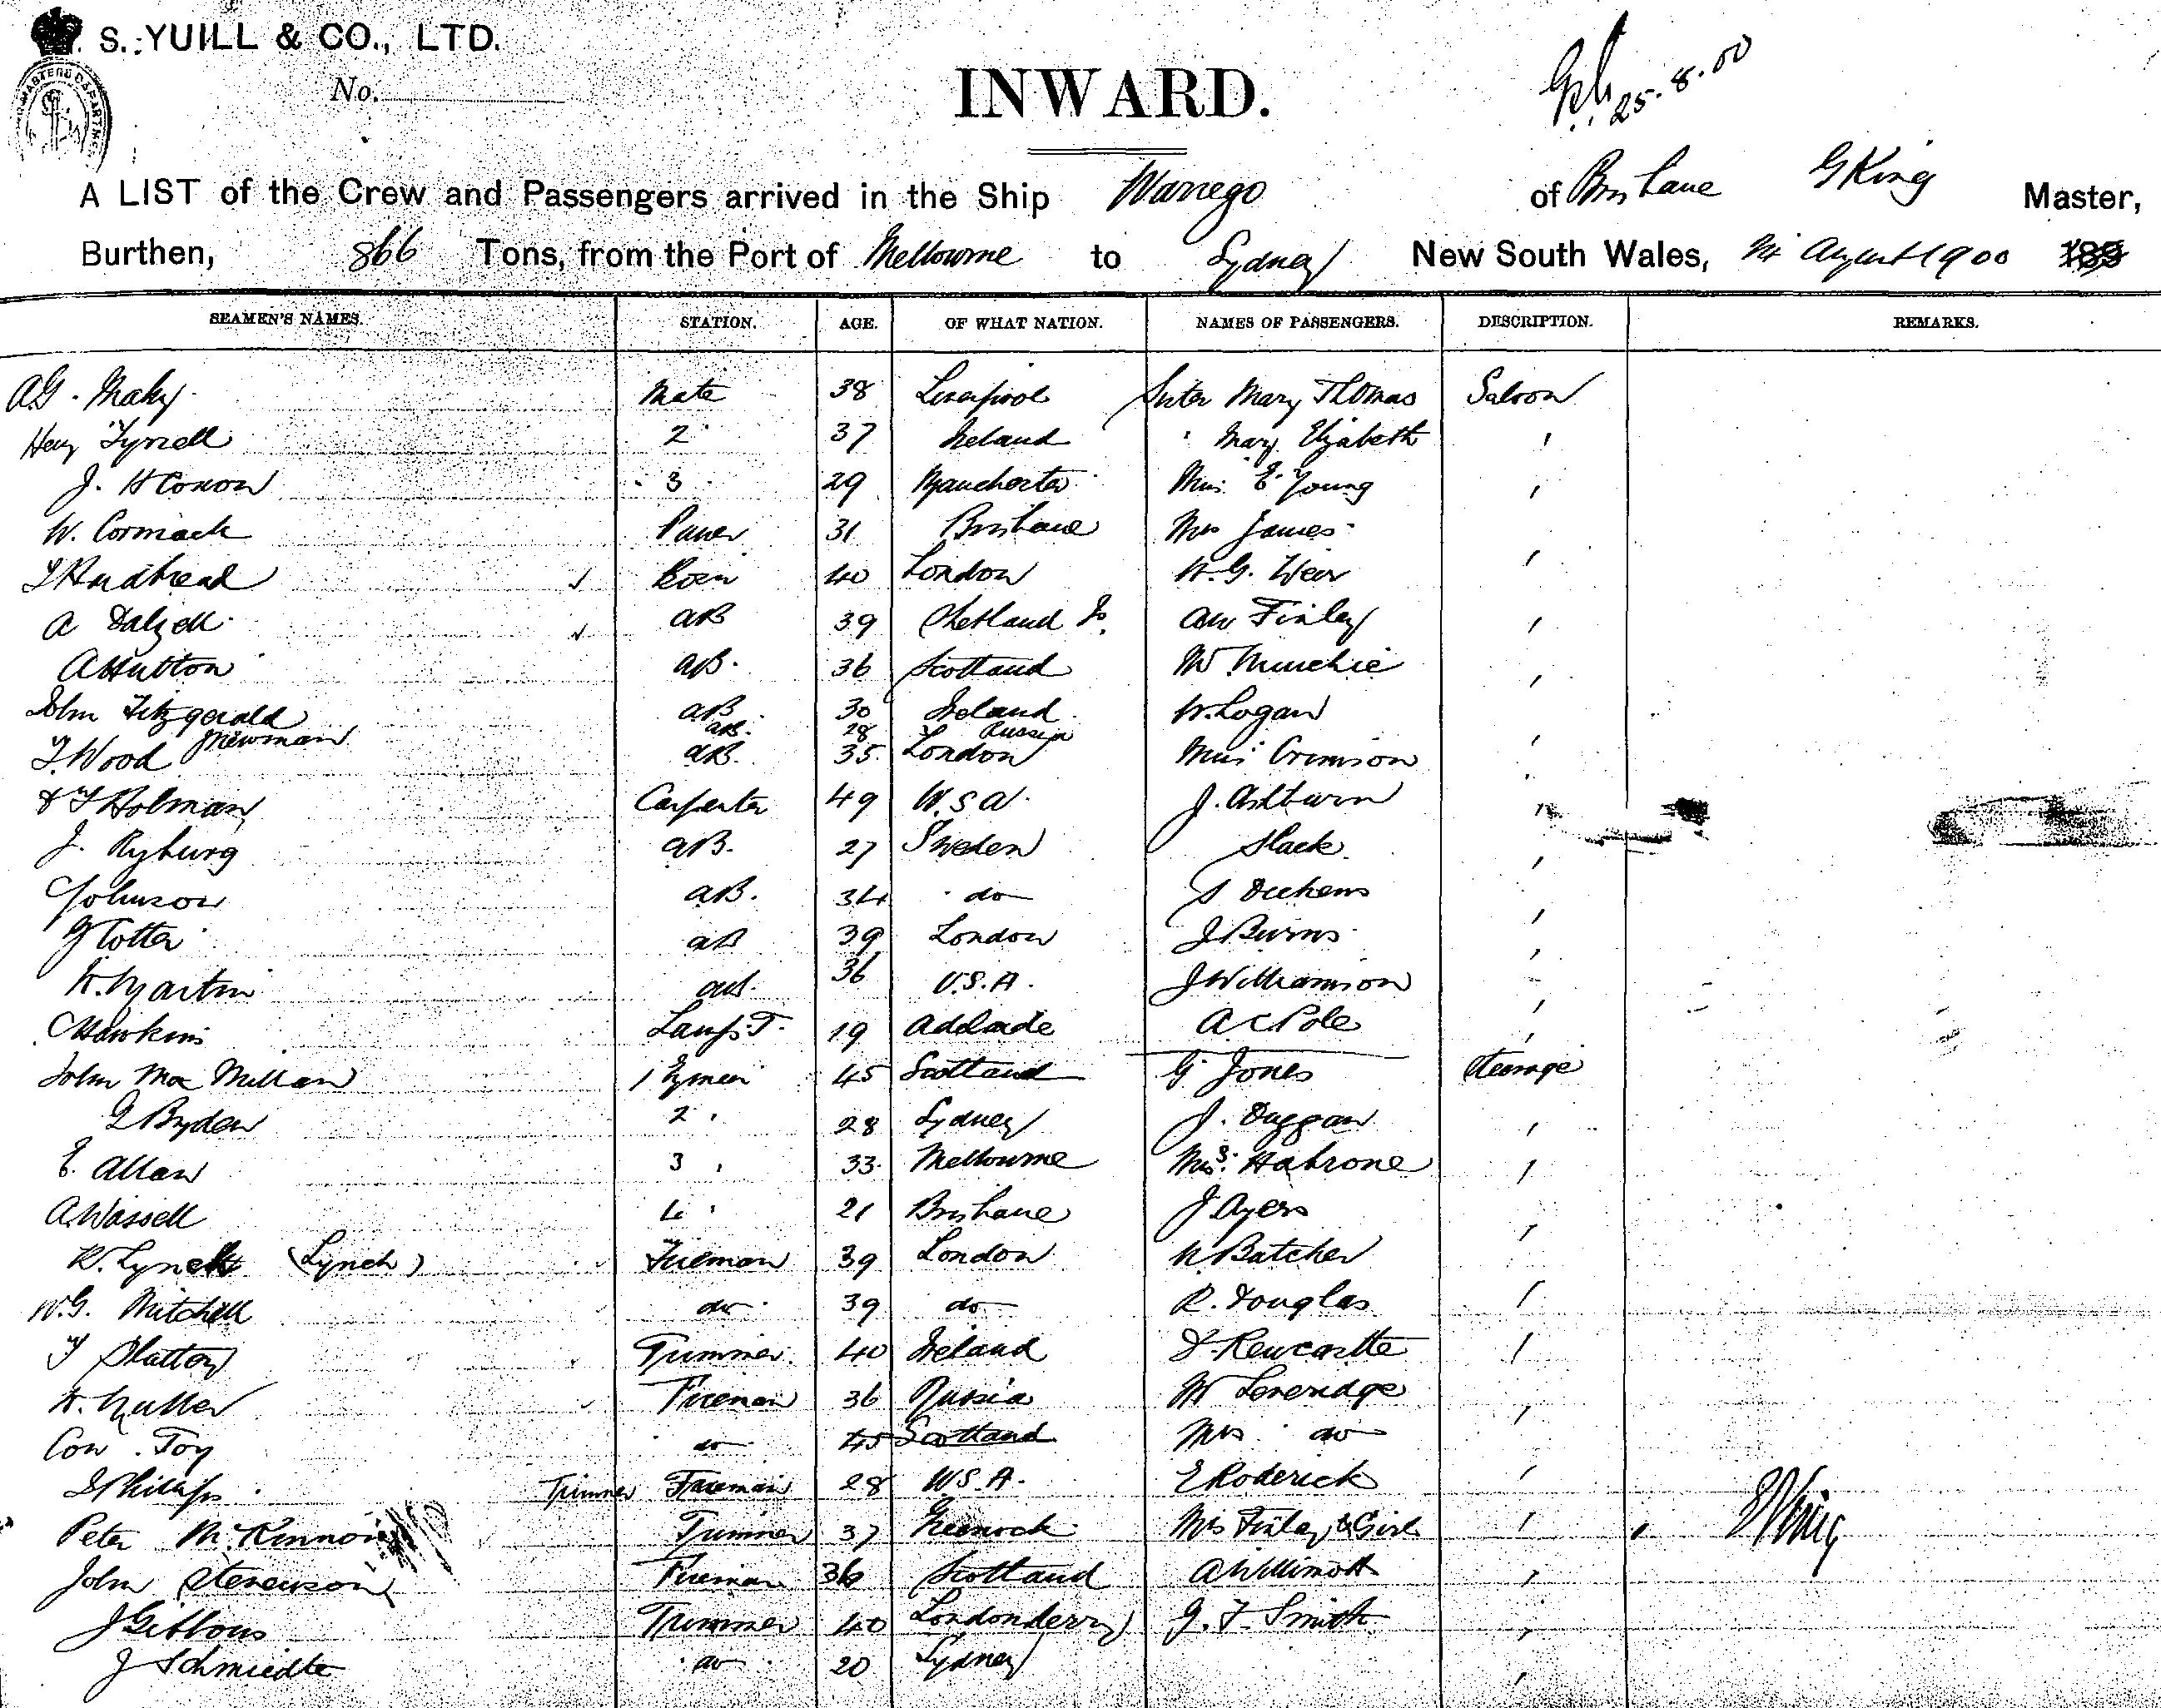 S. YUILL & CO., LTD.
No.
INWARD.
25.8.00
A LIST of the Crew and Passengers arrived in the Ship Warrego of Brisbane G King Master,
Burthen, 866 Tons, from the Port of Melbourne to Sydney New South Wales, August 1900 189
SEAMEN'S NAMES. STATION. AGE. OF WHAT NATION. NAMES OF PASSENGERS. DESCRIPTION. REMARKS.
A.G. Mate 38 Liverpool Sister Mary Thomas Saloon
Hery Tyrrell 2 37 Ireland " Mary Elizabeth "
J. H Conow 3 29 Manchester Miss E Young "
W. Cormack 31 Brisbane Mrs James
Hudbread Bosn 40 London W.G. Weir "
A Dalzell AB 39 Shetland Is. AW Finlay "
A Hutton AB. 36 Scotland W. Murchie "
John Fitzgerald AB 30 Ireland W. Logan
J Newman AB. 28 Russia
T. Wood AB. 35 London Miss Crimson "
Holman Carpenter 49 U.S.A. J. Ashburn "
J. Ryburg AB. 27 Sweden Slack "
C Johnson AB. 34 do S Dickens "
G Cotter AB 39 London J Burns "
H. Martin AB. 36 U.S.A. J Williamson "
C Hawkins Lamp T. 19 Adelaide A C Pole "
John Mac Millan 1 Engineer 45 Scotland G Jones Steerage
G Bryden 2 " 28 Sydney J. Duggan "
E. Allan 3 " 33 Melbourne Mrs. Habrone "
A. Wassell 4 " 21 Brisbane J. Ayers "
R. Lynch (Lynch) Fireman 39 London W Batcher
W.G. Mitchell do 39 do R. Douglas "
T Slattery Trimmer 40 Ireland Newcastle "
H. Muller Fireman 36 Russia W Leveridge "
Con. Toy do 45 Scotland Mrs do
Phillips Trimmer Fireman 28 U.S.A. E Roderick "
Peter McKinnon Trimmer 37 Greenock Mrs Finlay & Girl " G King
John Stevenson Fireman 36 Scotland A Willimott "
J Gibbons Trimmer 40 Londonderry G. F. Smith "
J Schmiedte do 20 Sydney "